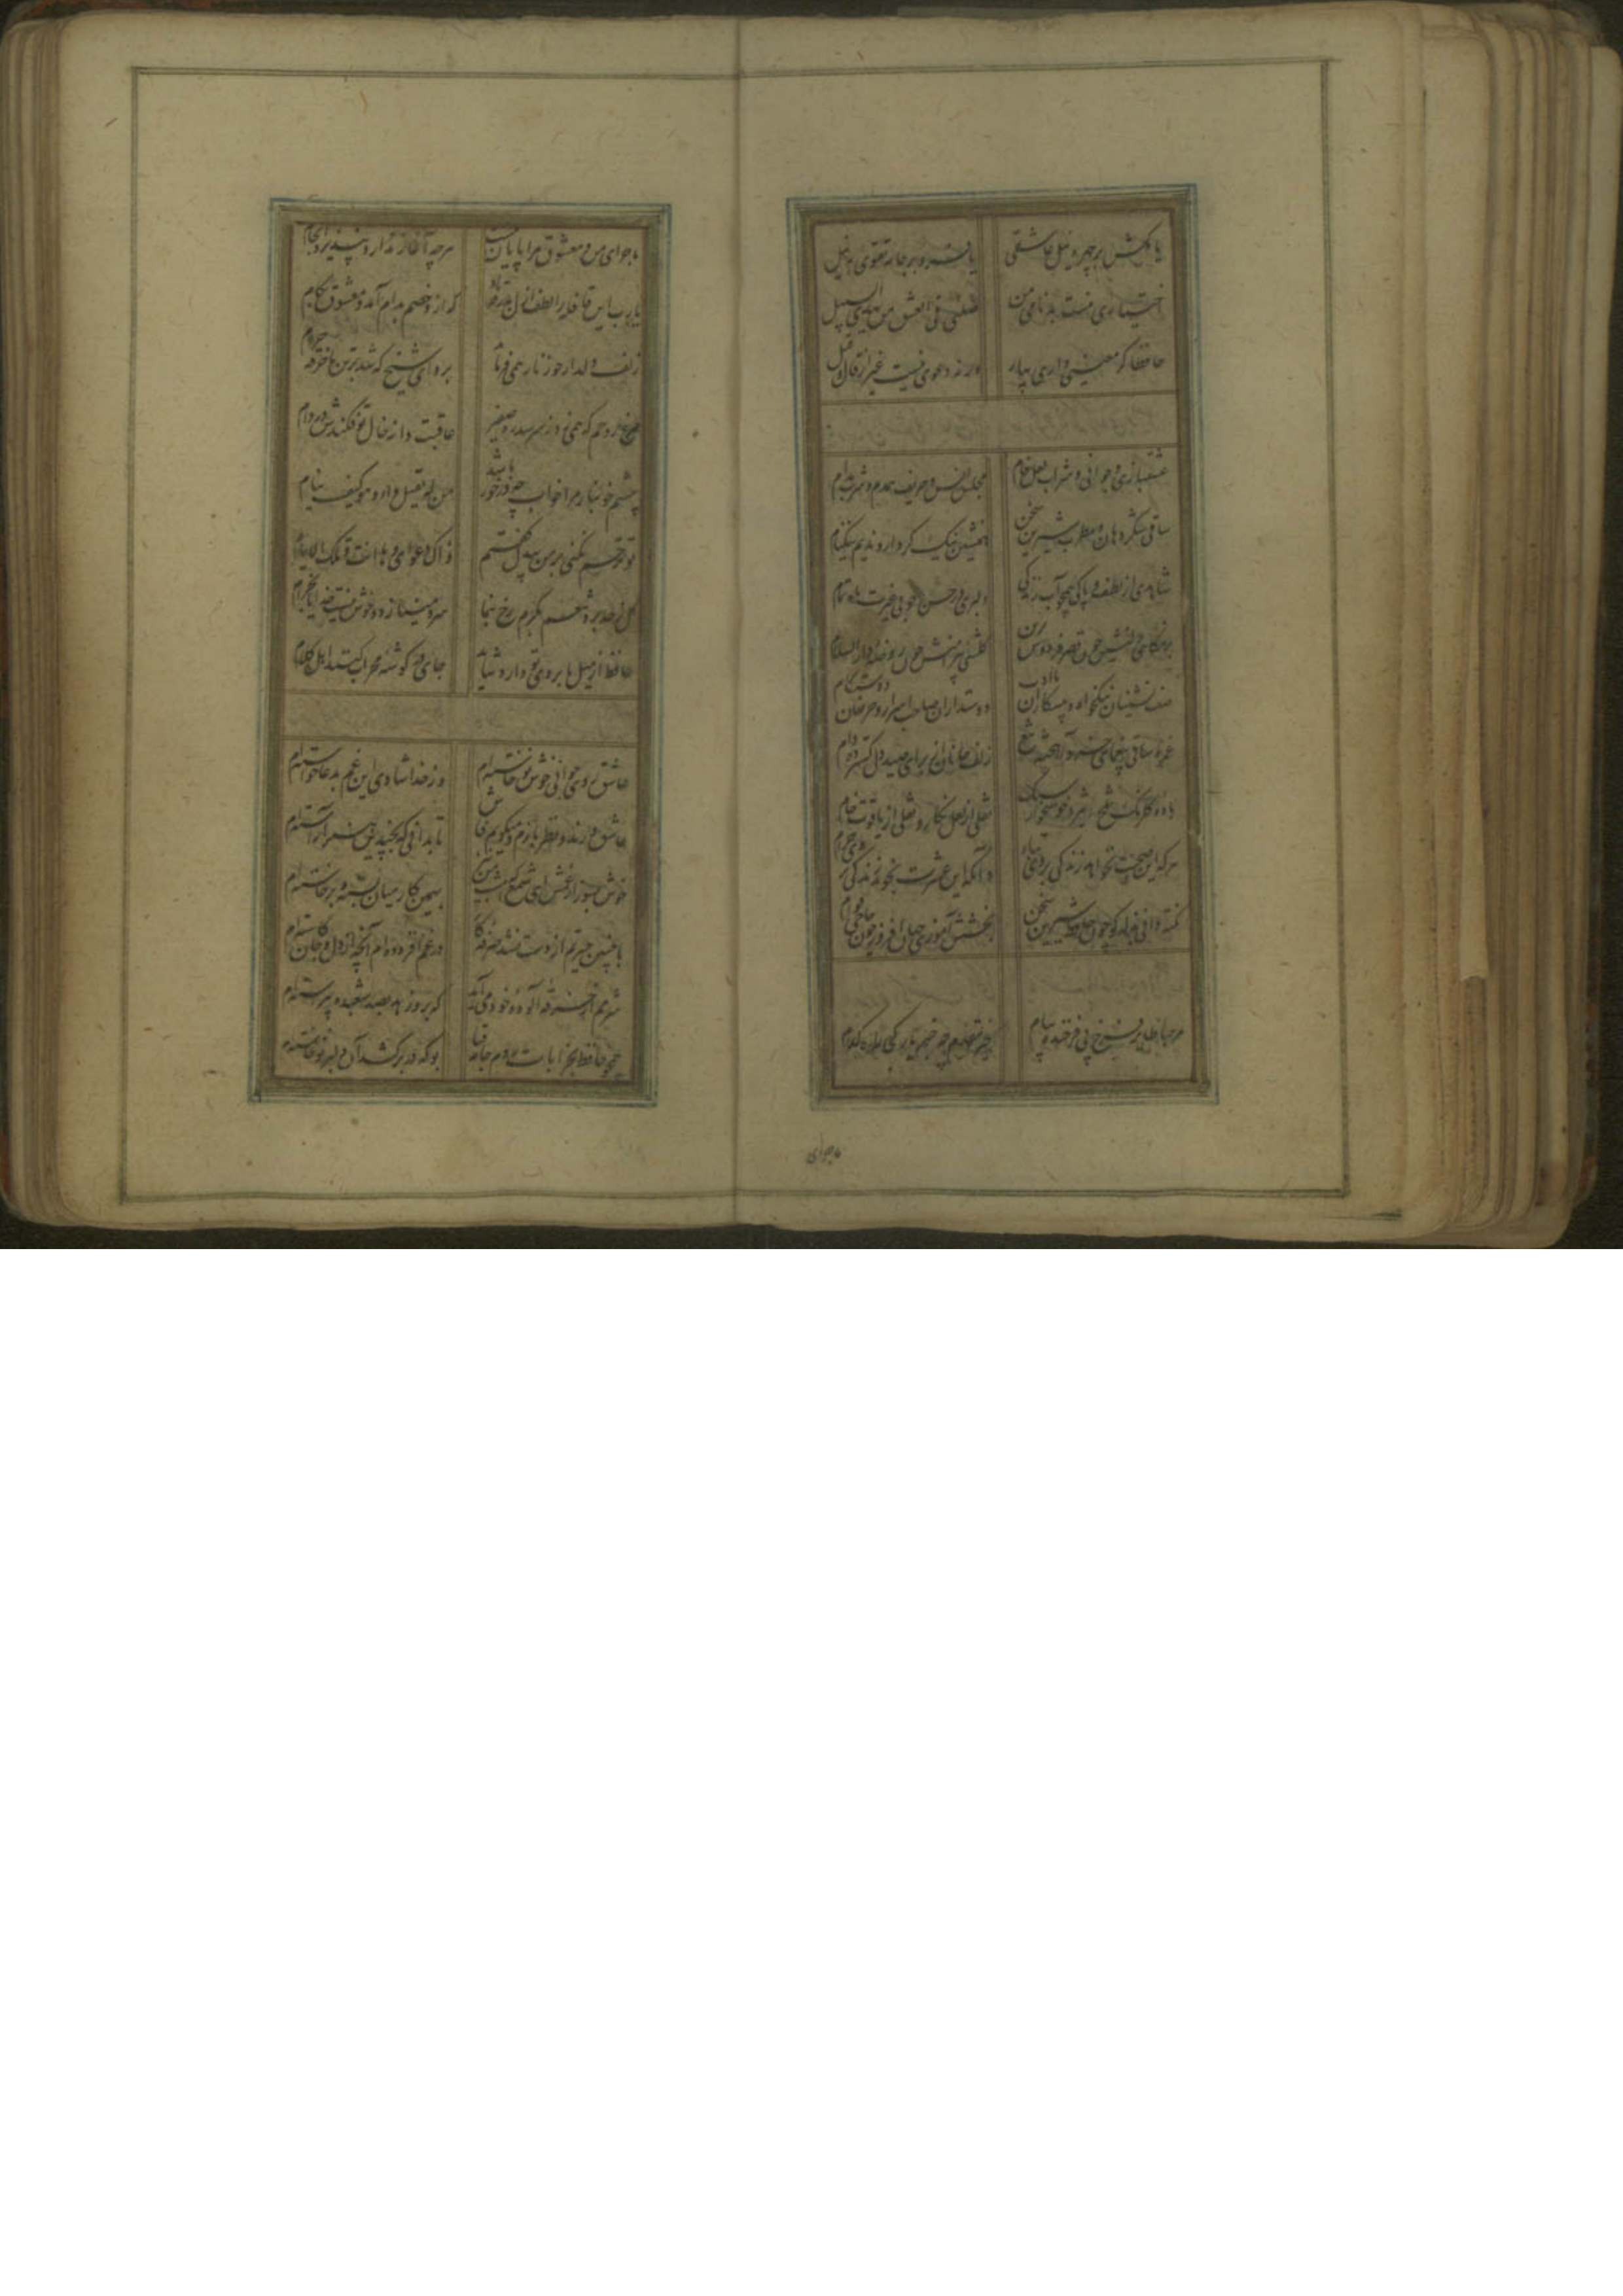 یا مکش بر چهره نیل عاشقی یا فرو بر جامه تقوی به نیل
اختیاری نیست بدنامی من ضلنی فی العشق من یهدی السبیل
حافظا گر معنیی داری بیار ورنه دعوی نیست غیر از قال و قیل
عشقبازی و جوانی و شراب لعل فام مجلس انس و حریف همدم و شرب مدام
ساقی شکر دهان و مطرب شیرین سخن همنشین نیک کردار و ندیم نیکنام
شاهدی از لطف و پاکی همچو آب زندگی دلبری در حسن و خوبی غیرت ماه تمام
بزمگاهی دلنشین چون قصر فردوس برین گلشنی پیرامنش چون روضه دار السلام
صف نشینان نیکخواه و پیشکاران با ادب دوستداران صاحب اسرار و حریفان دوستکام
غمزه ساقی بیغمای خرد آهخته تیغ زلف جانان از برای صید دل گسترده دام
باده گلرنگ تلخ خوشخوار سبک نقلی از لعل نگار و نقلی از یاقوت خام
هر که این صحبت نخواهد زندگی بر وی تباه وانکه این عشرت نجوید زندگی بر وی حرام
نکته دانی بذله گو چون حافظ شیرین سخن بخشش آموزی جهان افروز چون حاجی قوام
مرحبا طایر فرخ پی فرخنده پیام خیر مقدم چه خبر یار کجا راه کدام
ماجرای
ماجرای من و معشوق مرا پایان نیست هر چه آغاز ندارد نپذیرد انجام
یارب این قافله را لطف ازل بدرقه باد که ازو خصم بدام آمد و معشوق بکام
زلف دلدار چو زنار همی فرماید برو ای شیخ که شد بر تن ما خرقه حرام
مرغ روحم که همی زد ز سر سدره صفیر عاقبت دانه خال تو فکندش در دام
چشم خونبار مرا خواب چه در خور باشد من له یقتل داء دنف کیف ینام
تو ترحم نکنی بر من بیدل گفتم ذاک دعوای و ها انت و تلک الایام
گل ز حد برد تنعم بکرم رخ بنما سرو مینازد و خوش نیست خدا را بخرام
حافظ ار میل بابروی تو دارد شاید جای در گوشه محراب کنند اهل کلام
عاشق روی جوانی خوش نوخاسته‌ام وز خدا شادی این غم بدعا خواسته‌ام
عاشق و رند و نظر بازم و میگویم فاش تا بدانی که بچندین هنر آراسته‌ام
خوش بسوز از غمش ای شمع که امشب من بهمین کار میان بسته و برخاسته‌ام
با چنین حیرتم از دست بشد صرفه کار در غم افزوده‌ام آنچه از دل و جان کاسته‌ام
شرمم از خرقه آلوده خود می‌آید که برو پاره بصد شعبده پیراسته‌ام
همچو حافظ بخرابات روم جامه قبا بو که در بر کشد آن دلبر نوخاسته‌ام